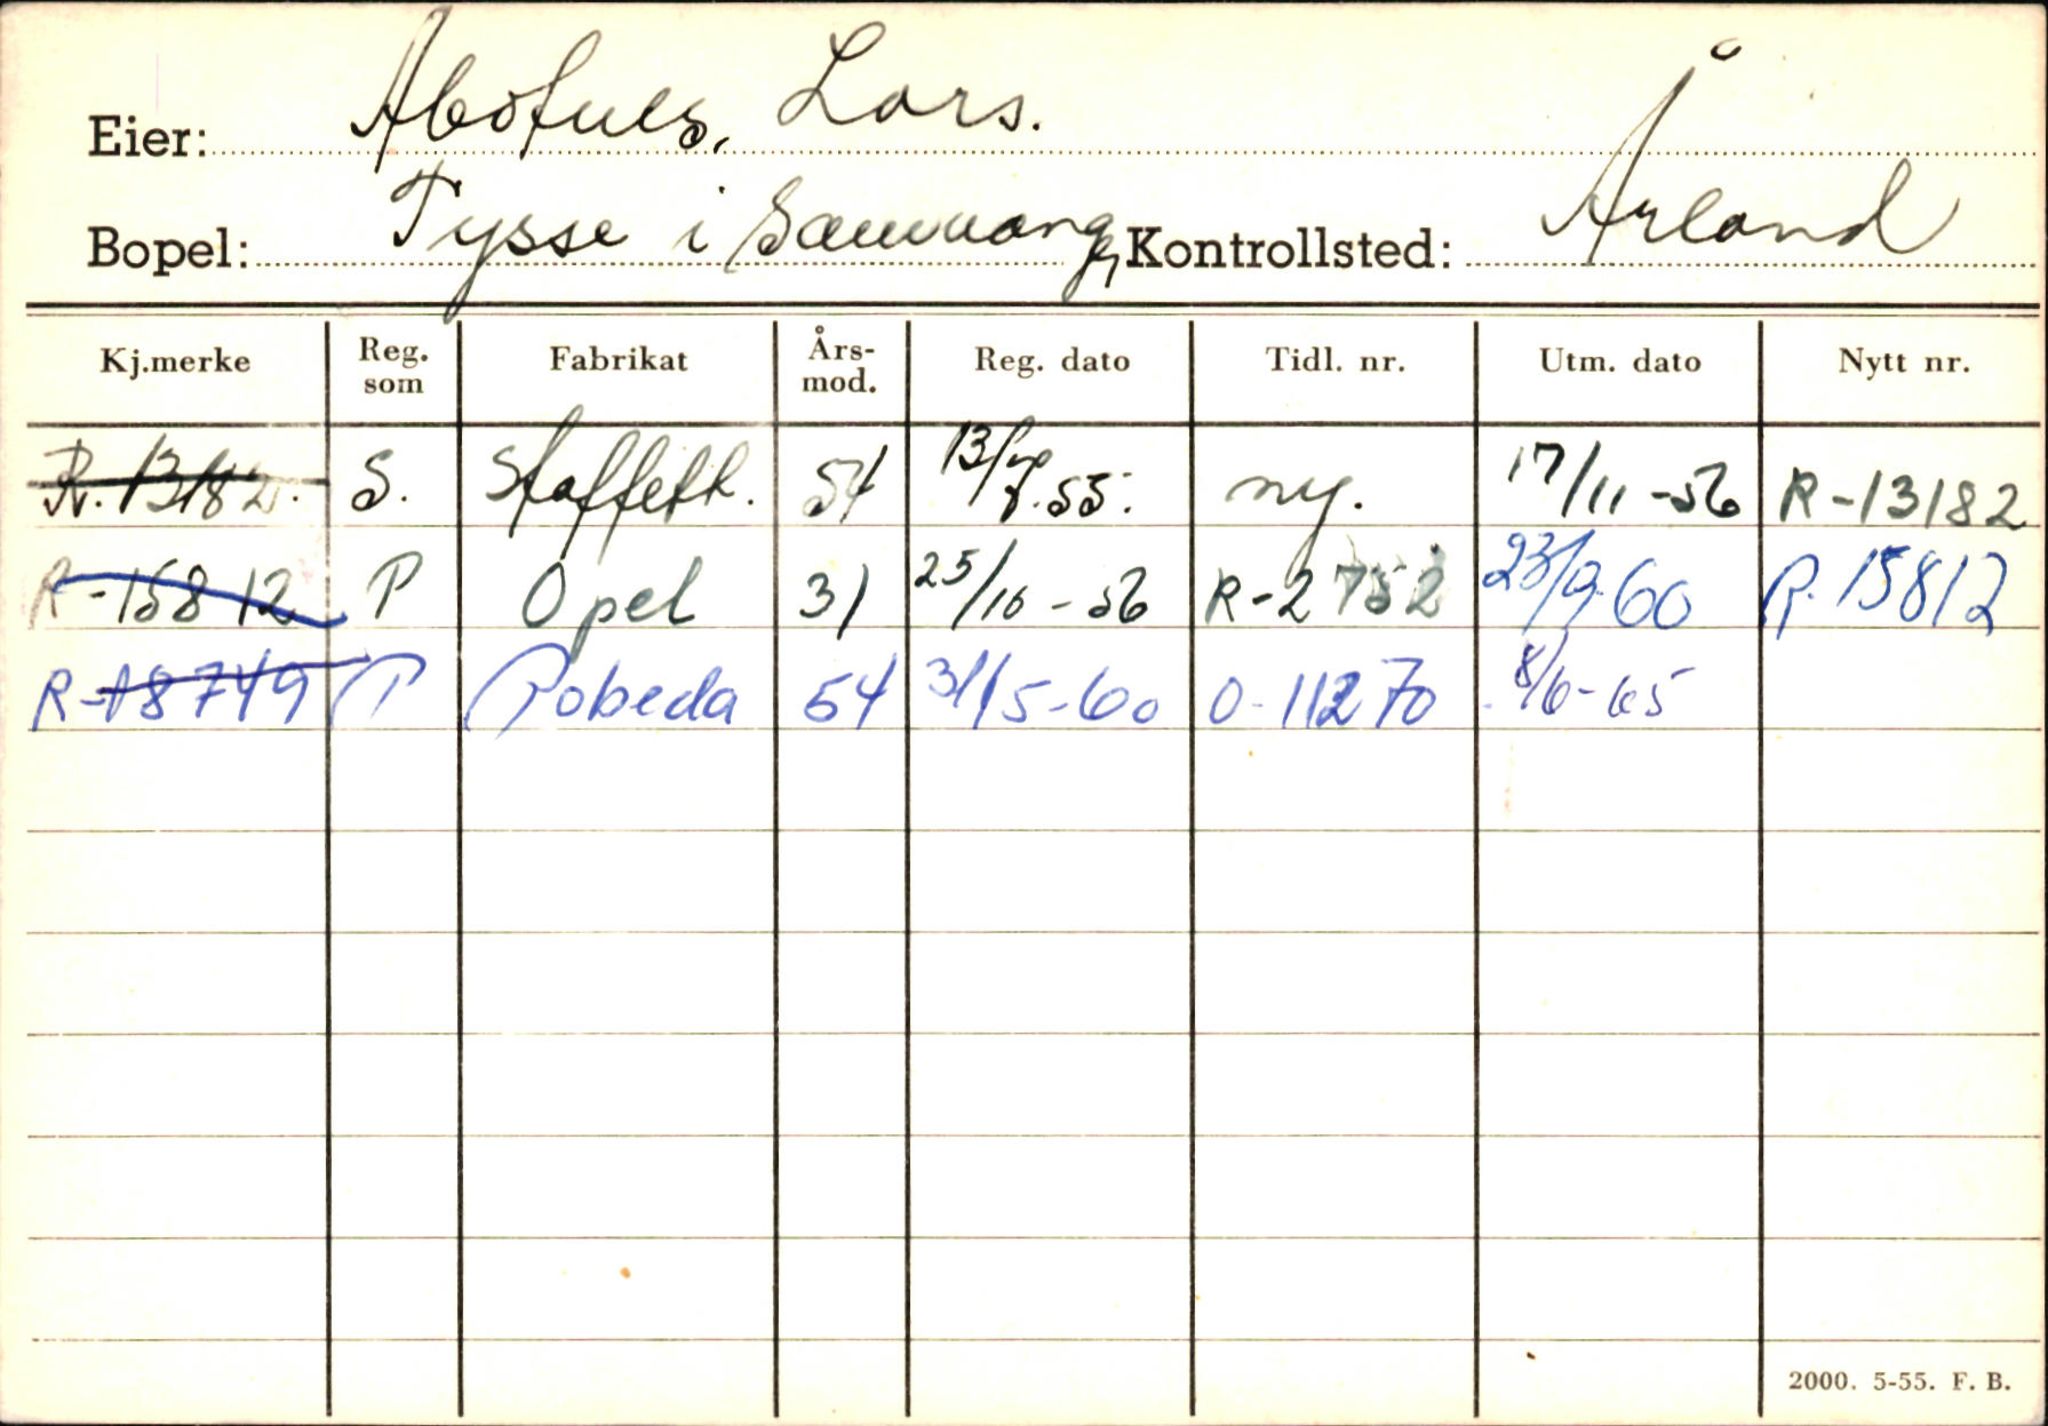 Eier: Abotnes, Lars.
Bopel: Tysse i Samnang, Kontrollsted: Årland
Kj.merke Reg. som Fabrikat Års-mod. Reg. dato Tidl. nr. Utm. dato Nytt nr.
R. 13182. S. Staffett. 54 13/7.55. ny. 17/11-56 R-13182
R-15812 P Opel 31 25/10-56 R-2752 23/9.60 R.15812
R-18749 P Pobeda 54 31/5-60 O-11270 8/6-65
2000. 5-55. F. B.